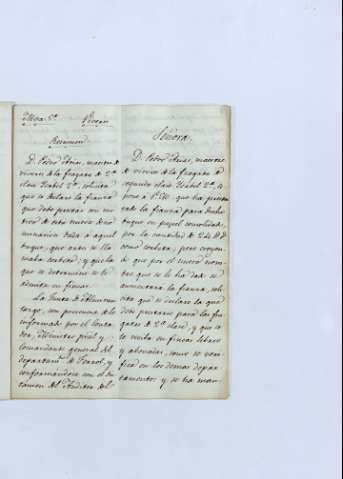 Mesa 5ª
Resumen
D. Pedro Arias, maestre de
viveres de la fragata de 2ª
clase Ysabel 2ª, solicita
que se declare la fianza
que debe prestar con mo-
tivo de este nuevo de-
nominacion dada á aquel
buque, que antes se lla-
maba corbeta; y que la
que se determine se le
admita en fincas.
La Junta de Almiran-
tazgo, con presencia de lo
informado por el Conta-
dor, Ministro pral y
Comandante general del
departamto de Ferrol, y
conformandose con el dic-
tamen del Auditor del
Señora.
D. Pedro Arias, maestre
de viveres de la fragata de
segunda clase Ysabel 2ª, es-
pone á V.M. que ha presen-
tado la fianza para dicho
buque en papel consolidado
por la cantidad de
como corbeta; pero creyen-
do que por el nuevo nom-
bre que se le ha dado se
aumentará la fianza, soli-
cita que se declare la que
debe prestarse para las fra-
gatas de 2ª clase, y que se
le reciba en fincas libres
y abonadas, como se veri-
fica en los demas depar-
tamentos; y se ha man-